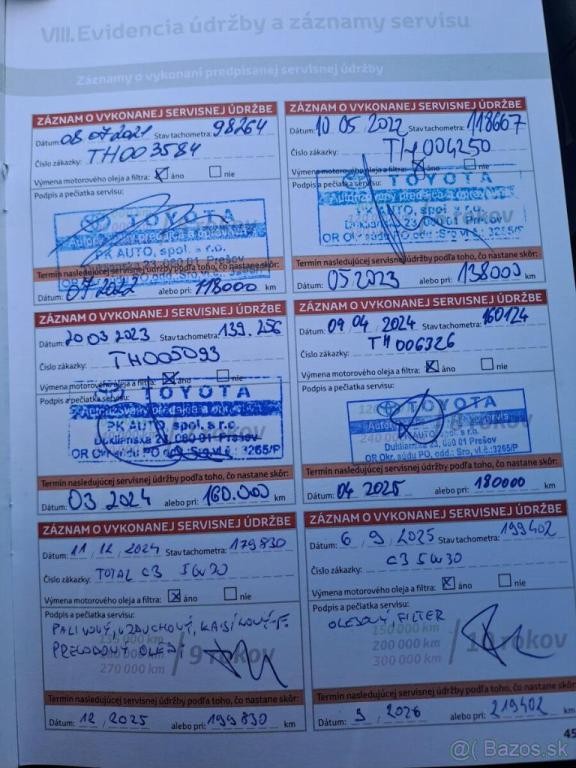 VIII. Evidencia údržby a záznamy servisu
Záznamy o vykonaní predpísanej servisnej údržby
ZÁZNAM O VYKONANEJ SERVISNEJ ÚDRŽBE
Dátum: 08 07 2021 Stav tachometra: 98264
Číslo zákazky: TH003584
Výmena motorového oleja a filtra: áno nie
Podpis a pečiatka servisu:
TOYOTA
Autorizovaný predajca a opravca
PK AUTO, spol. s r.o.
23, 080 01 Prešov
Termín nasledujúcej servisnej údržby podľa toho, čo nastane skôr:
Dátum: 07 2022 alebo pri: 118000 km
ZÁZNAM O VYKONANEJ SERVISNEJ ÚDRŽBE
Dátum: 10 05 2022 Stav tachometra: 118667
Číslo zákazky: TH004250
Výmena motorového oleja a filtra: áno nie
Podpis a pečiatka servisu:
TOYOTA
PK AUTO, spol. s r.o.
Duklianska 23, 080 01 Prešov
OR Okr. súdu PO, odd.: Sro, vl.č.: 3265/P
Termín nasledujúcej servisnej údržby podľa toho, čo nastane skôr:
Dátum: 05 2023 alebo pri: 138000 km
ZÁZNAM O VYKONANEJ SERVISNEJ ÚDRŽBE
Dátum: 20 03 2023 Stav tachometra: 139.256
Číslo zákazky: TH005093
Výmena motorového oleja a filtra: áno nie
Podpis a pečiatka servisu:
TOYOTA
Autorizovaný predajca a
PK AUTO, spol. s r.o.
Duklianska 23, 080 01 Prešov
OR Okr. súdu PO, odd.: Sro, vl.č.: 3265/P
Termín nasledujúcej servisnej údržby podľa toho, čo nastane skôr:
Dátum: 03 2024 alebo pri: 160.000 km
ZÁZNAM O VYKONANEJ SERVISNEJ ÚDRŽBE
Dátum: 09 04 2024 Stav tachometra: 160124
Číslo zákazky: TH006326
Výmena motorového oleja a filtra: áno nie
Podpis a pečiatka servisu:
TOYOTA
PK AUTO, spol. s r.o.
Duklianska 23, 080 01 Prešov
OR Okr. súdu PO, odd.: Sro, vl.č.: 3265/P
Termín nasledujúcej servisnej údržby podľa toho, čo nastane skôr:
Dátum: 04 2025 alebo pri: 180000 km
ZÁZNAM O VYKONANEJ SERVISNEJ ÚDRŽBE
Dátum: 11, 12, 2024 Stav tachometra: 179830
Číslo zákazky: TOTAL C3 5W30
Výmena motorového oleja a filtra: áno nie
Podpis a pečiatka servisu:
PALIVOVÝ, VZDUCHOVÝ,
PREVODOVÝ OLEJ
270 000 km / 9 rokov
Termín nasledujúcej servisnej údržby podľa toho, čo nastane skôr:
Dátum: 12, 2025 alebo pri: 199830 km
ZÁZNAM O VYKONANEJ SERVISNEJ ÚDRŽBE
Dátum: 6, 9, 2025 Stav tachometra: 199402
Číslo zákazky: C3 5W30
Výmena motorového oleja a filtra: áno nie
Podpis a pečiatka servisu:
OLEJOVÝ FILTER
150 000 km
200 000 km / 10 rokov
300 000 km
Termín nasledujúcej servisnej údržby podľa toho, čo nastane skôr:
Dátum: 9, 2026 alebo pri: 219402 km
45
@ Bazos.sk